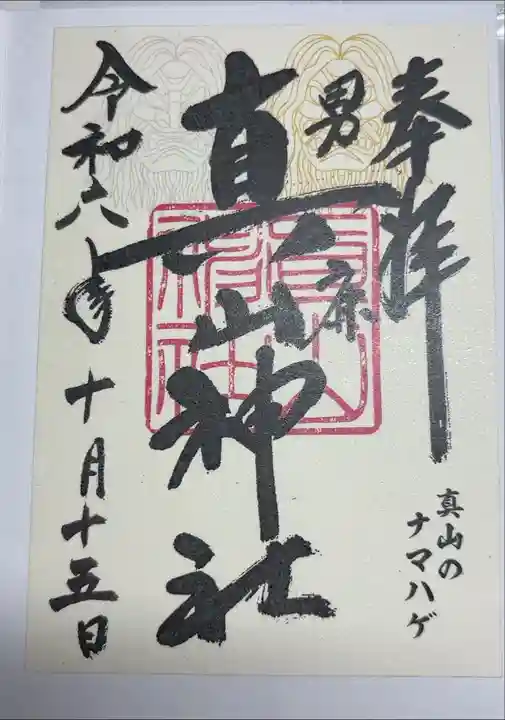 奉拝
真山の
ナマハゲ
男鹿
真山神社
真山神社
令和六年十月十五日